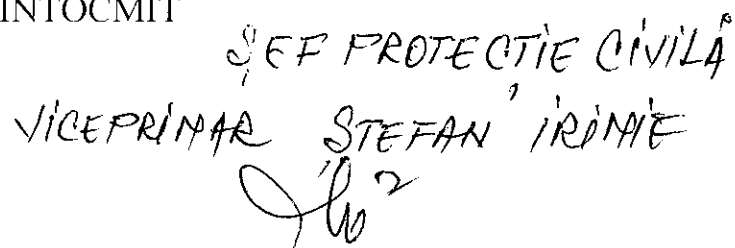 INTOCMIT
ȘEF PROTECȚIE CIVILĂ
VICEPRIMAR ȘTEFAN IRIMIE